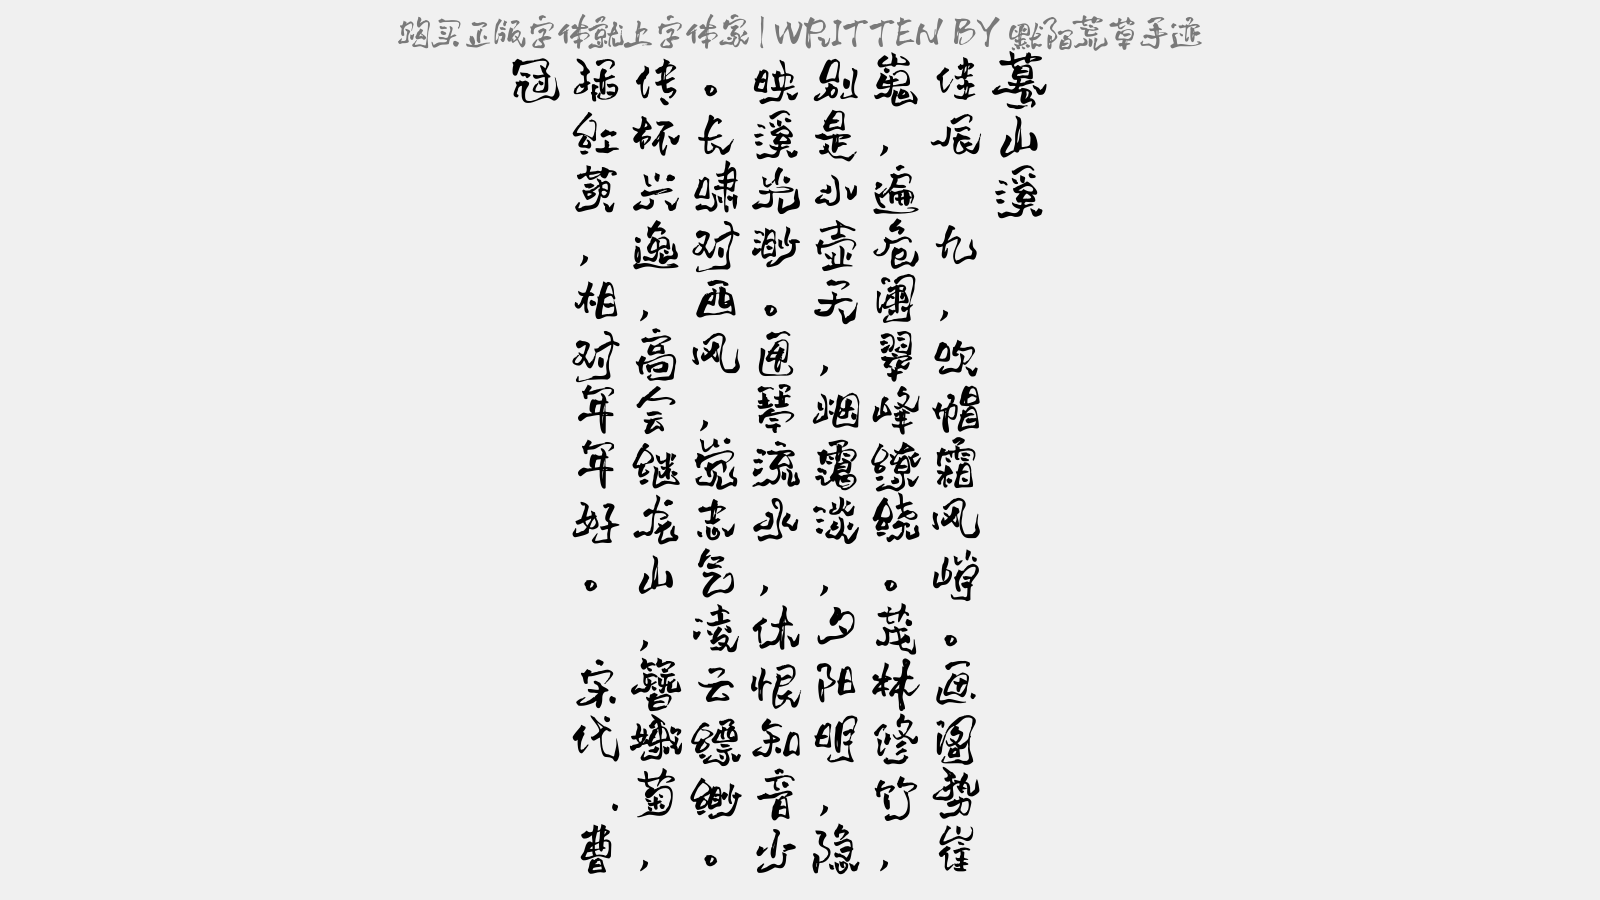 购买正版字体就上字体家|WRITTEN BY 默陌荒草手迹
蓦山溪
佳辰 九，吹帽霜风峭。画阁势崔
嵬，遍危阑翠峰缭绕。茂林修竹，
别是小壶天，烟霭淡，夕阳明，隐
映溪光渺。 匣琴流水，休恨知音少
。长啸对西风，觉志气凌云缥缈。
传杯兴逸，高会继龙山，簪嫩菊，
插红萸，相对年年好。 宋代．曹
冠